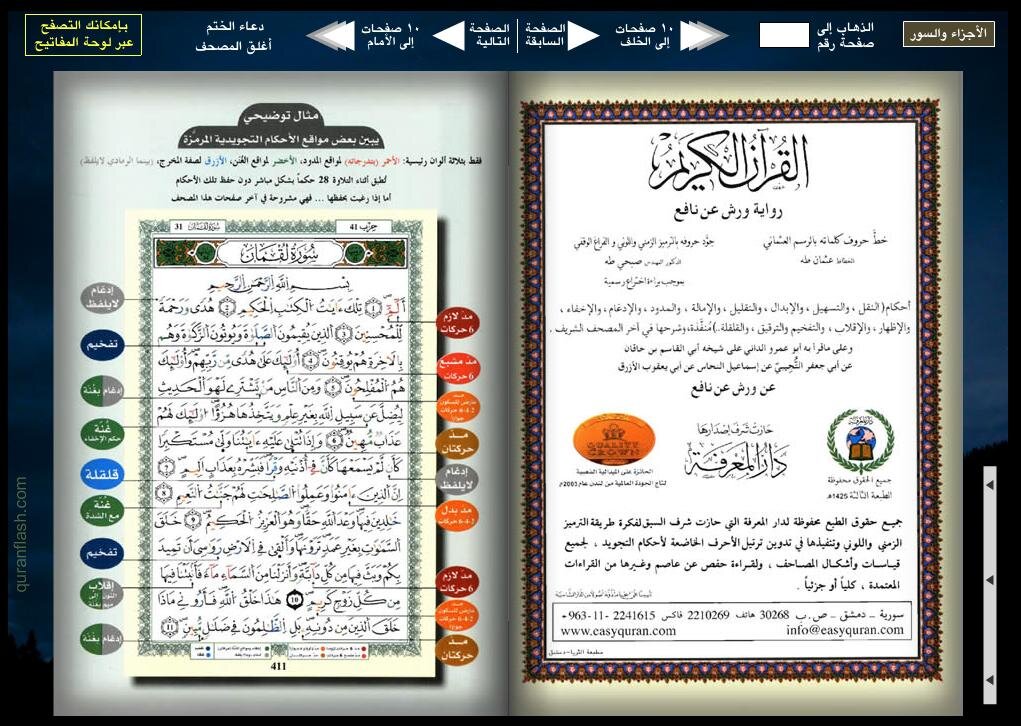 الأجزاء والسور
الذهاب إلى
صفحة رقم
١٠ صفحات
إلى الخلف
الصفحة
السابقة
الصفحة
التالية
١٠ صفحات
إلى الأمام
دعاء الختم
أغلق المصحف
بإمكانك التصفح
عبر لوحة المفاتيح
القرآن الكريم
رواية ورش عن نافع
خطَّ حروف كلماته بالرسم العثماني
الخطاط عثمان طه
جوَّد حروفه بالترميز الزمني واللوني و الفراغ الوقفي
الدكتور المهندس صبحي طه
بموجب براءة اختراع رسمية
أحكام ( النقل ، والتسهيل ، والإبدال ، والتقليل ، والإمالة ، والمدود ، والإدغام ، والإخفاء ،
والإظهار ، والإقلاب ، والتفخيم والترقيق ، والقلقلة..) مُنفَّذة، وشرحها في آخر المصحف الشريف .
وعلى ماقرأ به أبو عمرو الداني على شيخه أبي القاسم بن خاقان
عن أبي جعفر التُّجيبيّ عن إسماعيل النحاس عن أبي يعقوب الأزرق
عن ورش عن نافع
حازت شرف إصدارها
دار المعرفة
QUALITY
CROWN
الحائزة على الميدالية الذهبية
لتاج الجودة العالمية من لندن عام 2003م
جميع الحقوق محفوظة
الطبعة الثالثة 1425هـ
جميع حقوق الطبع محفوظة لدار المعرفة التي حازت شرف السبق لفكرة طريقة الترميز
الزمني واللوني وتنفيذها في تدوين ترتيل الأحرف الخاضعة لأحكام التجويد ، لجميع
قياسات وأشكال المصاحف ، ولقراءة حفص عن عاصم وغيرها من القراءات
المعتمدة ، كلياً أو جزئياً .
سورية ـ دمشق ـ ص.ب 30268 هاتف 2210269 فاكس 2241615 -11- 963+
www.easyquran.com info@easyquran.com
مطبعة الثريا - دمشق
مثال توضيحي
يبين بعض مواقع الأحكام التجويدية المرمَّزة
فقط بثلاثة ألوان رئيسية: الأحمر (بتدرجاته) لمواقع المدود، الأخضر لمواقع الغُنَن، الأزرق لصفة المخرج، (بينما الرمادي لايلفظ)
تُطبق أثناء التلاوة 28 حكماً بشكل مباشر دون حفظ تلك الأحكام
أما إذا رغبت بحفظها ... فهي مشروحة في آخر صفحات هذا المصحف
حزب 41
سورة لقمان 31
سُورَةُ لُقْمَان
بِسْمِ اللَّهِ الرَّحْمَٰنِ الرَّحِيمِ
أَلَمِّ ۝ تِلْكَ ءَايَٰتُ الْكِتَٰبِ الْحَكِيمِ ۝ هُدًى وَرَحْمَةً
لِّلْمُحْسِنِينَ ۝ الَّذِينَ يُقِيمُونَ الصَّلَوٰةَ وَيُوتُونَ الزَّكَوٰةَ وَهُم
بِالَاخِرَةِ هُمْ يُوقِنُونَ ۝ أُوْلَٰئِكَ عَلَىٰ هُدًى مِّن رَّبِّهِمْ وَأُوْلَٰئِكَ
هُمُ الْمُفْلِحُونَ ۝ وَمِنَ النَّاسِ مَنْ يَّشْتَرِي لَهْوَ الْحَدِيثِ
لِيُضِلَّ عَن سَبِيلِ اللَّهِ بِغَيْرِ عِلْمٍ وَيَتَّخِذُهَا هُزُؤًا اوْلَٰئِكَ لَهُمْ
عَذَابٌ مُّهِينٌ ۝ وَإِذَا تُتْلَىٰ عَلَيْهِ ءَايَٰتُنَا وَلَّىٰ مُسْتَكْبِرًا
كَأَن لَّمْ يَسْمَعْهَا كَأَنَّ فِي أُذْنَيْهِ وَقْرًا فَبَشِّرْهُ بِعَذَابٍ الِيمٍ ۝
إِنَّ الَّذِينَ ءَامَنُوا وَعَمِلُوا الصَّٰلِحَٰتِ لَهُمْ جَنَّٰتُ النَّعِيمِ ۝
خَٰلِدِينَ فِيهَا وَعْدَ اللَّهِ حَقًّا وَهُوَ الْعَزِيزُ الْحَكِيمُ ۝ خَلَقَ
السَّمَٰوَٰتِ بِغَيْرِ عَمَدٍ تَرَوْنَهَا وَأَلْقَىٰ فِي الَارْضِ رَوَٰسِيَ أَن تَمِيدَ
بِكُمْ وَبَثَّ فِيهَا مِن كُلِّ دَابَّةٍ وَأَنزَلْنَا مِنَ السَّمَاءِ مَاءً فَأَنۢبَتْنَا فِيهَا
مِن كُلِّ زَوْجٍ كَرِيمٍ ۝ هَٰذَا خَلْقُ اللَّهِ فَأَرُونِي مَاذَا
خَلَقَ الَّذِينَ مِن دُونِهِ بَلِ الظَّٰلِمُونَ فِي ضَلَٰلٍ مُّبِينٍ ۝
411
مدّ لازم
6 حركات
مد مشبع
6 حركات
مد
عارض للسكون
2-4-6 حركات
جوازاً
مد
حركتان
إدغام
لايلفظ
مد بدل
2-4-6 حركات
مدّ لازم
6 حركات
مد
عارض للسكون
2-4-6 حركات
مد
حركتان
إدغام
لايلفظ
تفخيم
إدغام بغنة
غُنة
حكم الإخفاء
قلقلة
غُنة
مع الشدة
تفخيم
إقلاب
النون إلى
ميم بغنة
إدغام بغنة
quranflash.com